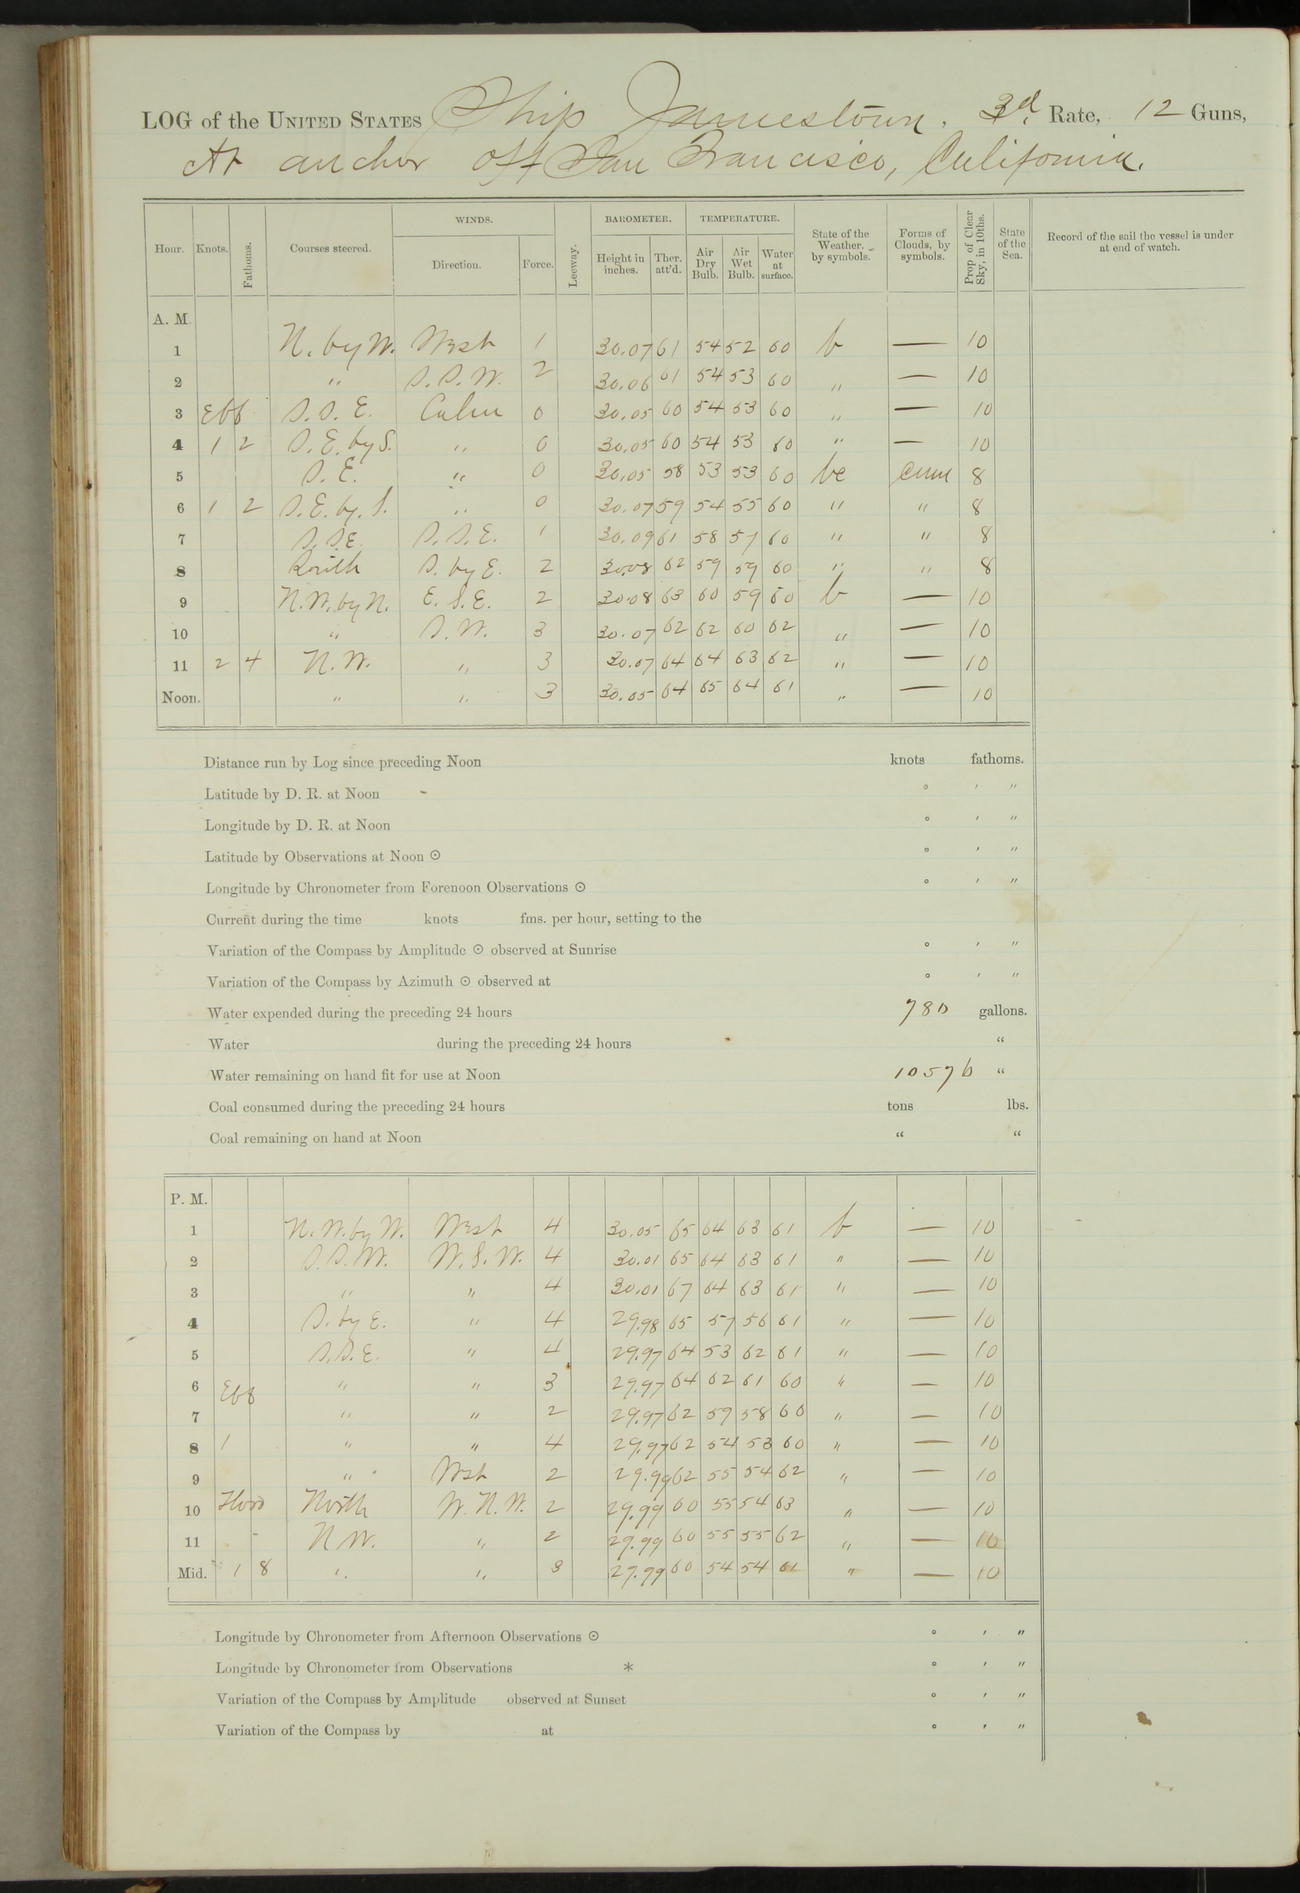 LOG of the UNITED STATES Ship Jamestown, 3d. Rate, 12 Guns,
At anchor off San Francisco, California.
Hour. Knots. Fathoms. Courses steered. WINDS. Direction. Force. Leeway. BAROMETER. Height in inches. Ther. att'd. TEMPERATURE. Air Dry Bulb. Air Wet Bulb. Water at surface. State of the Weather, by symbols. Forms of Clouds, by symbols. Prop. of Clear Sky, in 10ths. State of the Sea. Record of the sail the vessel is under at end of watch.
A. M.
1 N. by W. West 1 30.07 61 54 52 60 b — 10
2 " S. S. W. 2 30.06 61 54 53 60 " — 10
3 Ebb S. S. E. Calm 0 30.05 60 54 53 60 " — 10
4 1 2 S. E. by S. " 0 30.05 60 54 53 60 " — 10
5 S. E. " 0 30.05 58 53 53 60 bc cum 8
6 1 2 S. E. by. S. " 0 30.07 59 54 55 60 " " 8
7 S. S. E. S. S. E. 1 30.09 61 58 57 60 " " 8
8 South S. by E. 2 30.08 62 59 59 60 " " 8
9 N. W. by N. E. S. E. 2 30.08 63 60 59 60 b — 10
10 " S. W. 3 30.07 62 62 60 62 " — 10
11 2 4 N. W. " 3 30.07 64 64 63 62 " — 10
Noon. " " 3 30.05 64 65 64 61 " — 10
Distance run by Log since preceding Noon knots fathoms.
Latitude by D. R. at Noon ° ′ ″
Longitude by D. R. at Noon ° ′ ″
Latitude by Observations at Noon ☉ ° ′ ″
Longitude by Chronometer from Forenoon Observations ☉ ° ′ ″
Current during the time knots fms. per hour, setting to the
Variation of the Compass by Amplitude ☉ observed at Sunrise ° ′ ″
Variation of the Compass by Azimuth ☉ observed at ° ′ ″
Water expended during the preceding 24 hours 780 gallons.
Water during the preceding 24 hours "
Water remaining on hand fit for use at Noon 10576 "
Coal consumed during the preceding 24 hours tons lbs.
Coal remaining on hand at Noon " "
P. M.
1 N. W. by W. West 4 30.05 65 64 63 61 b — 10
2 S. S. W. W. S. W. 4 30.01 65 64 63 61 " — 10
3 " " 4 30.01 67 64 63 61 " — 10
4 S. by E. " 4 29.98 65 57 56 61 " — 10
5 S. S. E. " 4 29.97 64 53 62 61 " — 10
6 Ebb " " 3 29.97 64 62 61 60 " — 10
7 " " 2 29.97 62 59 58 60 " — 10
8 1 " " 4 29.97 62 54 53 60 " — 10
9 " West 2 29.99 62 55 54 62 " — 10
10 North W. N. W. 2 29.99 60 55 54 63 " — 10
11 N W. " 2 29.99 60 55 55 62 " — 10
Mid. 1 8 " " 3 29.99 60 54 54 61 " — 10
Longitude by Chronometer from Afternoon Observations ☉ ° ′ ″
Longitude by Chronometer from Observations * ° ′ ″
Variation of the Compass by Amplitude observed at Sunset ° ′ ″
Variation of the Compass by at ° ′ ″